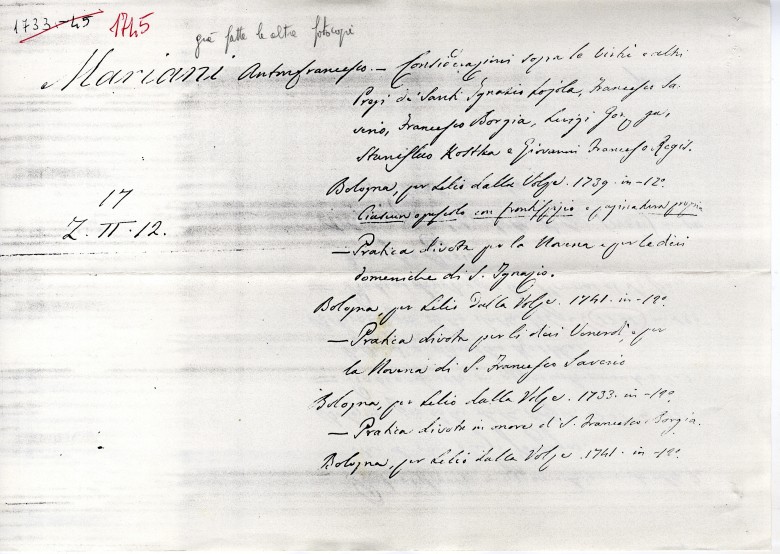 1733-45 1745
già fatte le altre fotocopie
Mariani Antonfrancesco. – Considerazioni sopra le Virtù e altri
Pregi de' Santi Ignazio Lojola, Francesco Sa-
verio, Francesco Borgia, Luigi Gonzaga,
Stanislao Kostka e Giovanni Francesco Regis.
Bologna, per Lelio dalla Volpe. 1739. in-12º
17
Z. II. 12.
Ciascun opuscolo con frontispizio e paginatura propria
– Pratica divota per la Novena e per le dieci
domeniche di S. Ignazio.
Bologna, per Lelio dalla Volpe. 1741. in-12º.
– Pratica divota per li dieci Venerdì, e per
la Novena di S. Francesco Saverio
Bologna, per Lelio dalla Volpe. 1733. in-12º.
– Pratica divota in onore di S. Francesco Borgia.
Bologna, per Lelio dalla Volpe. 1741. in-12º.